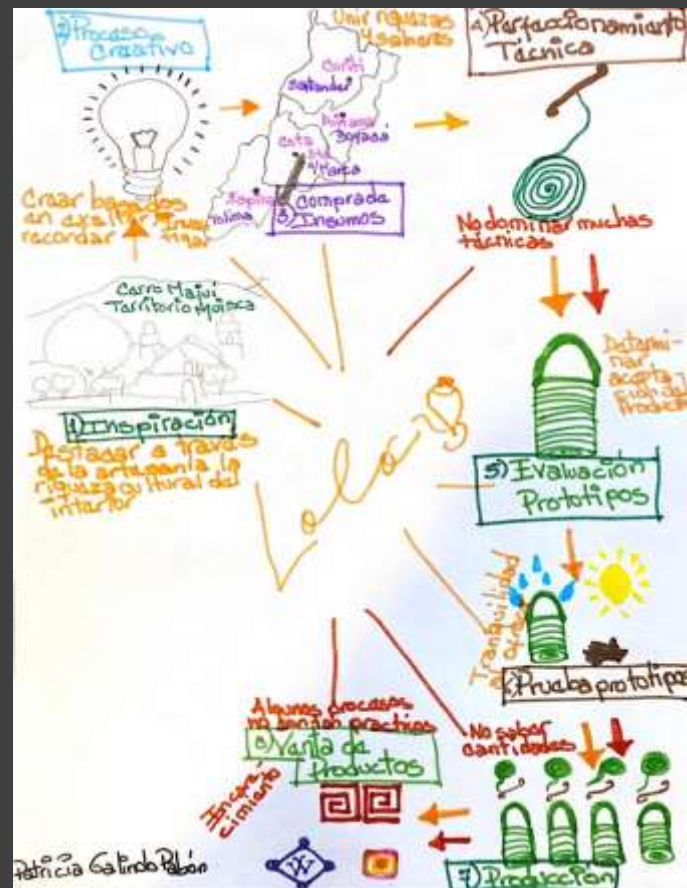 2) Proceso
Creativo
Unir riquezas
y saberes
4) Perfeccionamiento
Técnica
Curití
Santander
Boyacá
Cota
Espinal
Tolima
3) Comprade
Insumos
Crear basados
en exaltar
recordar
Inves
tigar
No dominar muchas
técnicas
Cerro Majuí
Territorio Muisca
1) Inspiración
Destacar a través
de la artesanía la
riqueza cultural del
interior
Lola
Determi-
nar
acepta
ción del
Producto
5) Evaluación
Prototipos
Tranquilidad
6) Prueba prototipos
Algunos procesos
no tan practicos
8) Venta de
Productos
No saber
cantidades
7) Producción
Patricia Galindo Pabón